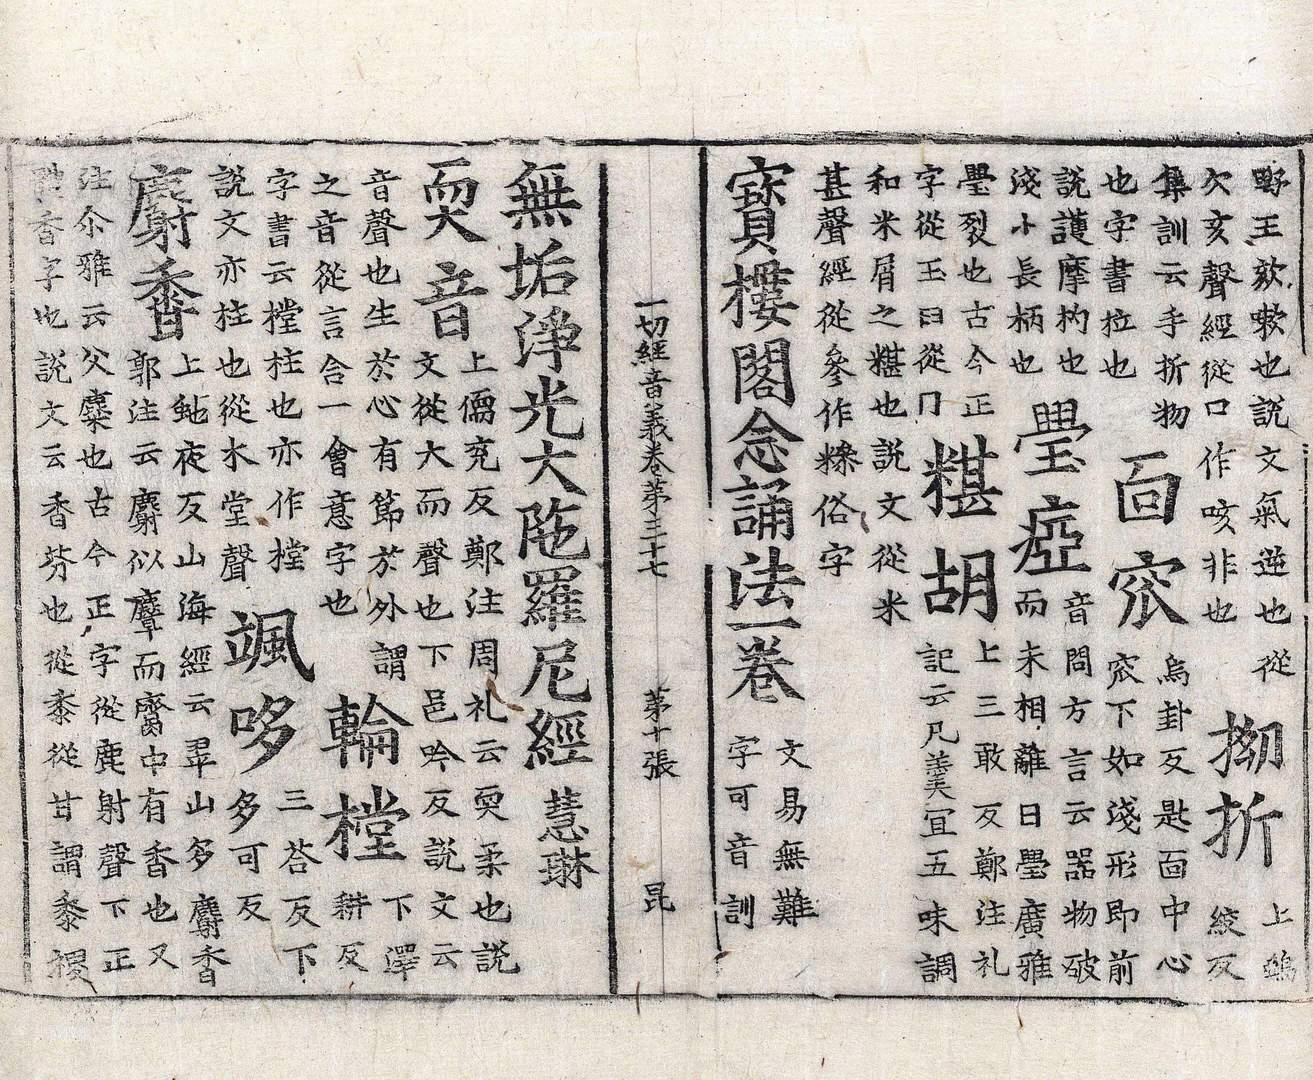 野王欬嗽也說文氣逆也從
欠亥聲經從口作咳非也
拗折
上鵶
絞反
集訓云手折物
也字書拉也
靣窊
烏卦反是靣中心
窊下如淺形即前
說護摩杓也
淺小長柄也
璺瘂
音問方言云器物破
而未相離曰璺廣雅
璺裂也古今正
字從玉曰從冂
糂胡
上三敢反鄭注礼
記云凡羙宜五味調
和米屑之糂也說文從米
甚聲經從參作糝俗字
寶樓閣念誦法一卷
文易無難
字可音訓
一切經音義卷苐三十七 苐十張 昆
無垢淨光大陁羅尼經 慧琳
耎音
上儒兖反鄭注周礼云耎柔也說
文從大而聲也下邑吟反說文云
音聲也生於心有節於外謂
之音從言含一會意字也
輪樘
下澤
耕反
字書云樘柱也亦作樘
說文亦柱也從木堂聲
颯哆
三荅反下
多可反
麝香
上虵夜反山海經云翠山多麝香
郭注云麝似麞而臍中有香也又
注尒雅云父麋也古今正字從鹿射聲下正
體香字也說文云香芳也從黍從甘謂黍稷